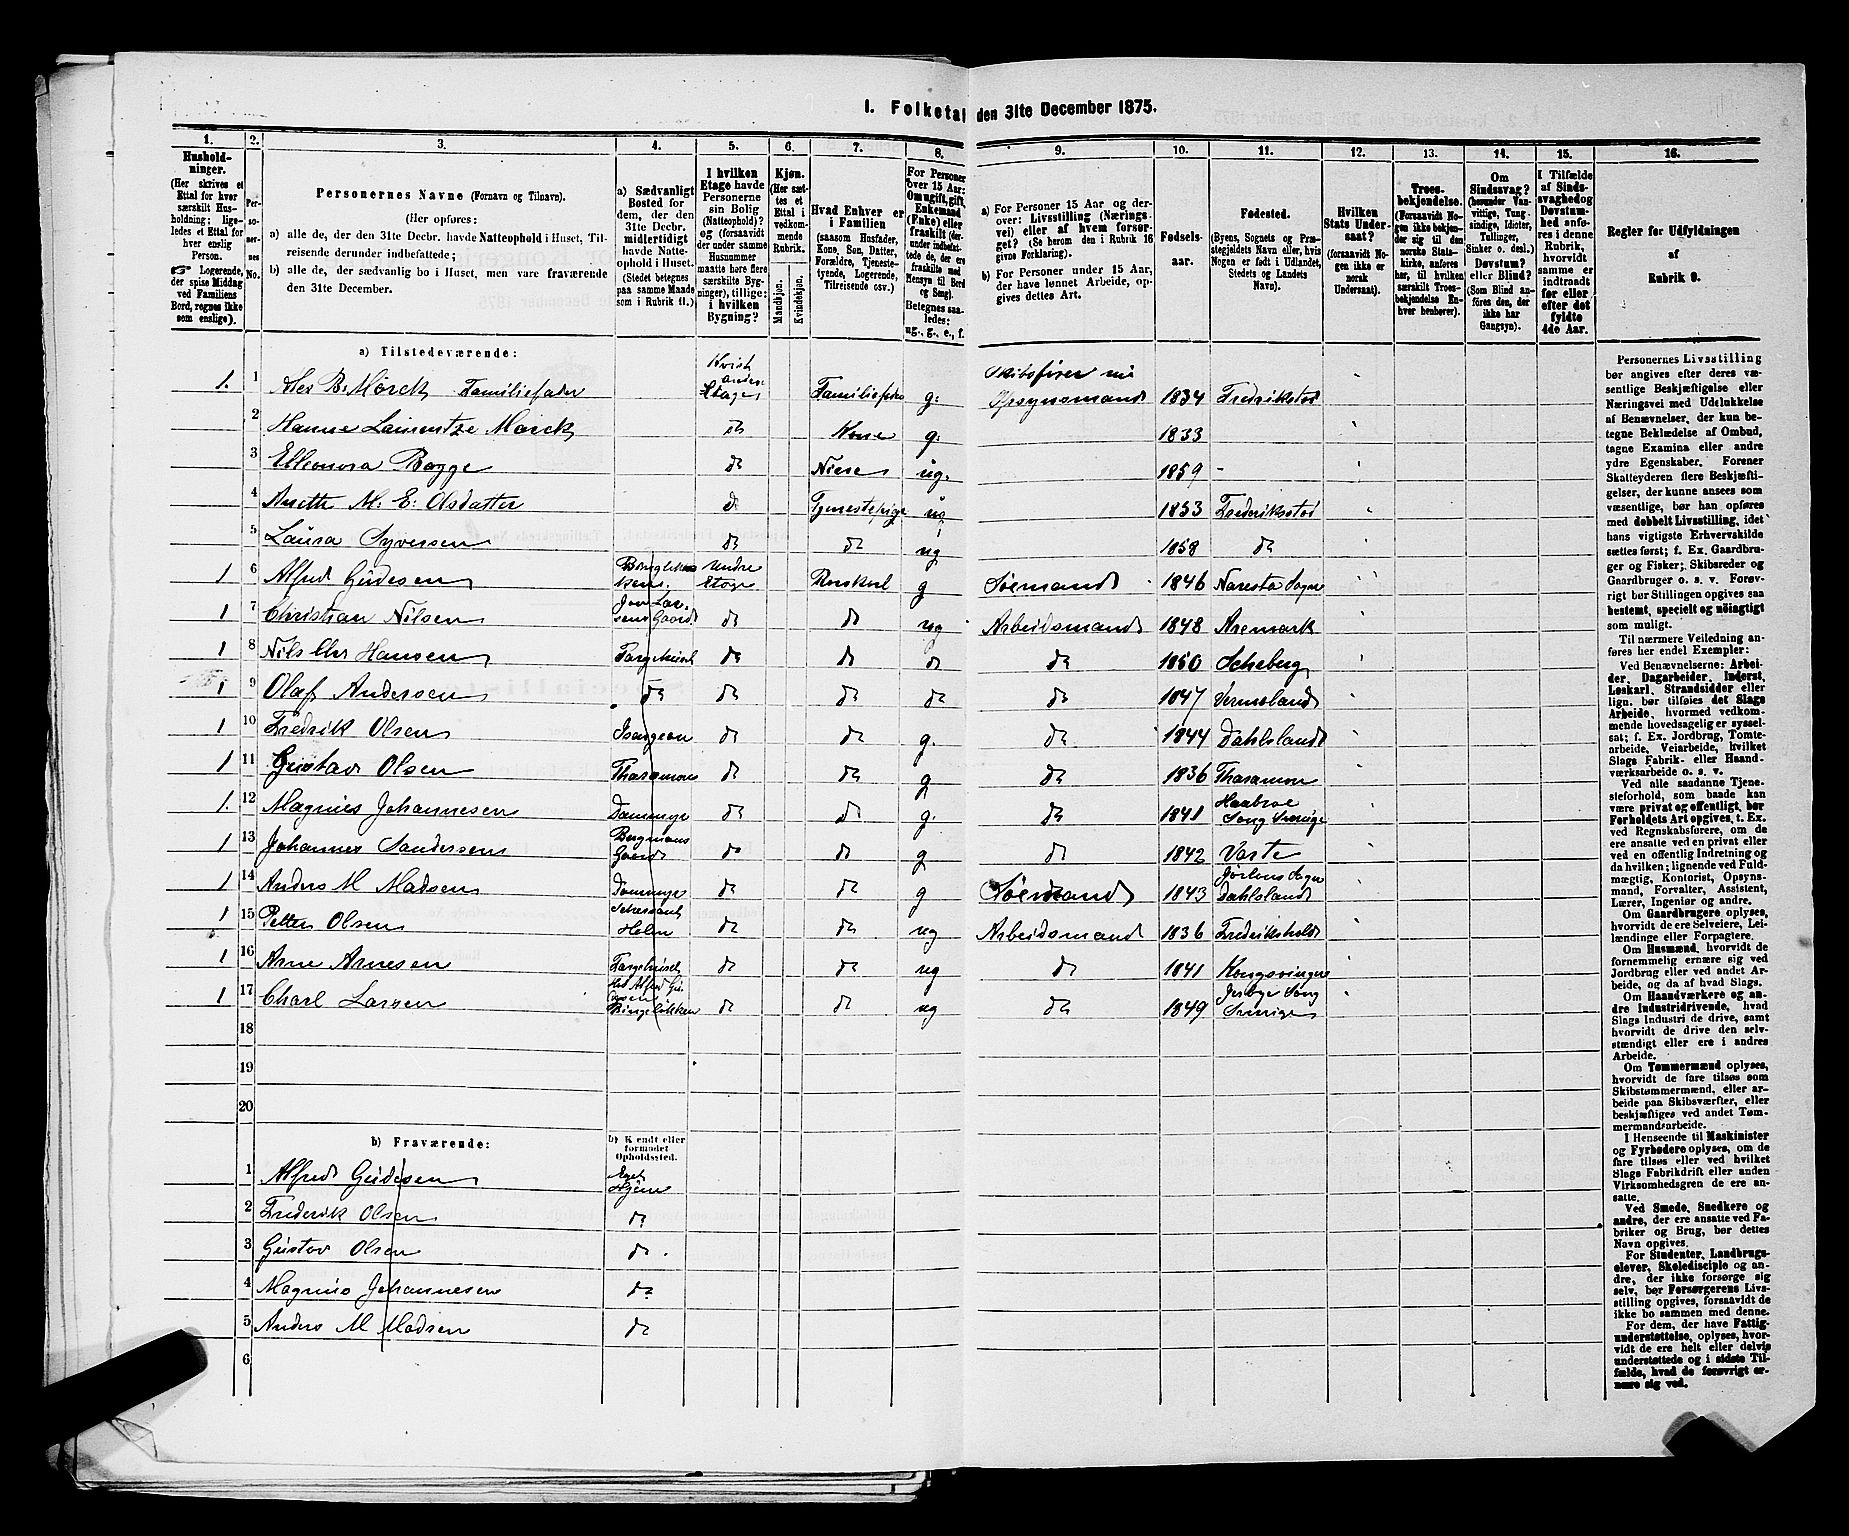 I. Folketal den 31te December 1875.
1. 2. 3. 4. 5. 6. 7. 8. 9. 10. 11. 12. 13. 14. 15. 16.
Husholdninger.
(Her skrives et Ettal for hver særskilt Husholdning; ligeledes et Ettal for hver enslig Person.
☞ Logerende, der spise Middag ved Familiens Bord, regnes ikke som enslige).
Personernes No.
Personernes Navne (Fornavn og Tilnavn).
(Her opføres:
a) alle de, der den 31te Decbr. havde Natteophold i Huset, Tilreisende derunder indbefattede;
b) alle de, der sædvanlig bo i Huset, men vare fraværende den 31te December.
a) Sædvanligt Bosted for dem, der den 31te Decbr. midlertidigt havde Natteophold i Huset. (Stedet betegnes paa samme Maade som i Rubrik 11.)
I hvilken Etage havde Personerne sin Bolig (Natteophold)? og (forsaavidt der under samme Husnummer maatte høre flere særskilte Bygninger), tillige: i hvilken Bygning?
Kjøn. (Her sættes et Ettal i vedkommende Rubrik.
Mandkjøn. Kvindekjøn.
Hvad Enhver er i Familien (saasom Husfader, Kone, Søn, Datter, Forældre, Tjenestetyende, Logerende, Tilreisende osv.)
For Personer over 15 Aar: Om ugift, gift, Enkemand (Enke) eller fraskilt (derunder indbefattede de, der ere fraskilte med Hensyn til Bord og Seng). Betegnes saaledes: ug., g., e., f.
a) For Personer 15 Aar og derover: Livsstilling (Næringsvei) eller af hvem forsørget? (Se herom den i Rubrik 16 givne Forklaring).
b) For Personer under 15 Aar, der have lønnet Arbeide, opgives dettes Art.
Fødselsaar.
Fødested. (Byens, Sognets og Præstegjeldets Navn eller, hvis Nogen er født i Udlandet, Stedets og Landets Navn).
Hvilken Stats Undersaat? (forsaavidt Nogen ikke er norsk Undersaat).
Troesbekjendelse. (Forsaavidt Nogen ikke bekjender sig til den norske Statskirke, anføres her, til hvilken særskilt Troesbekjendelse Enhver henhører).
Om Sindssvag? (herunder Vanvittige, Tungsindige, Idioter, Tullinger, Sinker o. desl.) Døvstum? eller Blind? (Som Blind anføres den, der ikke har Gangsyn).
I Tilfælde af Sindssvaghed og Døvstumhed anføres i denne Rubrik, hvorvidt samme er indtraadt før eller efter det fyldte 4de Aar.
Regler før Udfyldningen af Rubrik 9.
a) Tilstedeværende:
1. 1 B. Mørck Familiefader Kvist anden Etage Familiefader g. Skibsfører nu Opsynsmand 1834 Fredrikstad
2 Hanne Laurentze Mørck do Kone g. 1833
3 Elleonora Bagge do Niese ug. 1859 -
4 Anette M. E. Olsdatter do Tjenestepige ug 1853 Frederikstad
5 Laura Syversen do do ug 1858 do
1 6 Alfred Gudesen undre Etage g Søemand 1846 Sogn
1 7 Christian Nilsen do do ug Arbeidsmand 1848 Aremark
1 8 Nils Chr Hansen do do do do 1850
1 9 Olaf Andersen do do do do do 1847 Vermeland
1 10 Fredrik Olsen do do g. do 1844 Dahlsland
1 11 Gustav Olsen do do g do 1836
1. 12 Magnus Johannesen Dammyr do do g. do 1841 Sverige
1 13 Johannes Sandersen Bergmans Gaard do do g do 1842
1 14 Anders M Madsen Dammyr do do g Søemand 1843 Sogn Dahlsland
1 15 Petter Olsen do do ug Arbeidsmand 1836 Frederikshald
1 16 Arne Arnesen do do ug do 1841 Kongsvinger
1 17 Charl Larsen do do ug do 1849 Sverige
18
19
20
b) Fraværende:
b) Kjendt eller formodet Opholdssted.
1 Alfred Gudesen Hjem
2 Frederik Olsen do
3 Gustav Olsen do.
4 Magnus Johannesen do
5 Anders M Madsen do
6
Personernes Livsstilling bør angives efter deres væsentlige Beskjæftigelse eller Næringsvei med Udelukkelse af Benævnelser, der kun betegne Beklædelse af Ombud, tagne Examina eller andre ydre Egenskaber. Forener Skatteyderen flere Beskjæftigelser, der kunne ansees som væsentlige, bør han opføres med dobbelt Livsstilling, idet hans vigtigste Erhvervskilde sættes først; f. Ex. Gaardbruger og Fisker; Skibsreder og Gaardbruger o. s. v. Forøvrigt bør Stillingen opgives saa bestemt, specielt og nöiagtigt som muligt.
Til nærmere Veiledning anføres her endel Exempler:
Ved Benævnelserne: Arbeider, Dagarbeider, Inderst, Løskarl, Strandsidder eller lign. bør tilføies det Slags Arbeide, hvormed vedkommende hovedsagelig er sysselsat; f. Ex. Jordbrug, Tomtearbeide, Veiarbeide, hvilket Slags Fabrik- eller Haandværksarbeide o. s. v.
Ved alle saadanne Tjenesteforhold, som baade kan være privat og offentligt, bør Forholdets Art opgives, t. Ex. ved Regnskabsførere, om de ere ansatte ved en privat eller ved en offentlig Indretning og da hvilken; lignende ved Fuldmægtig, Kontorist, Opsynsmand, Forvalter, Assistent, Lærer, Ingeniør og andre.
Om Gaardbrugere oplyses, hvorvidt de ere Selveiere, Leilændinge eller Forpagtere.
Om Husmænd, hvorvidt de fornemmelig ernære sig ved Jordbrug eller ved andet Arbeide, og da af hvad Slags.
Om Haandværkere og andre Industridrivende, hvad Slags Industri de drive, samt hvorvidt de drive den selvstændigt eller ere i andres Arbeide.
Om Tømmermænd oplyses, hvorvidt de fare tilsøs som Skibstømmermænd, eller arbeide paa Skibsværfter, eller beskjæftiges ved andet Tømmermandsarbeide.
I Henseende til Maskinister og Fyrbødere oplyses, om de fare tilsøs eller ved hvilket Slags Fabrikdrift eller anden Virksomhedsgren de ere ansatte.
Ved Smede, Snedkere og andre, der ere ansatte ved Fabriker og Brug, bør dettes Navn opgives.
For Studenter, Landbrugselever, Skoledisciple og andre, der ikke forsørge sig selv, bør Forsørgerens Livsstilling opgives, forsaavidt de ikke bo sammen med denne.
For dem, der have Fattigunderstøttelse, oplyses, hvorvidt de ere helt eller delvis understøttede og i sidste Tilfælde, hvad de forøvrigt ernære sig ved.